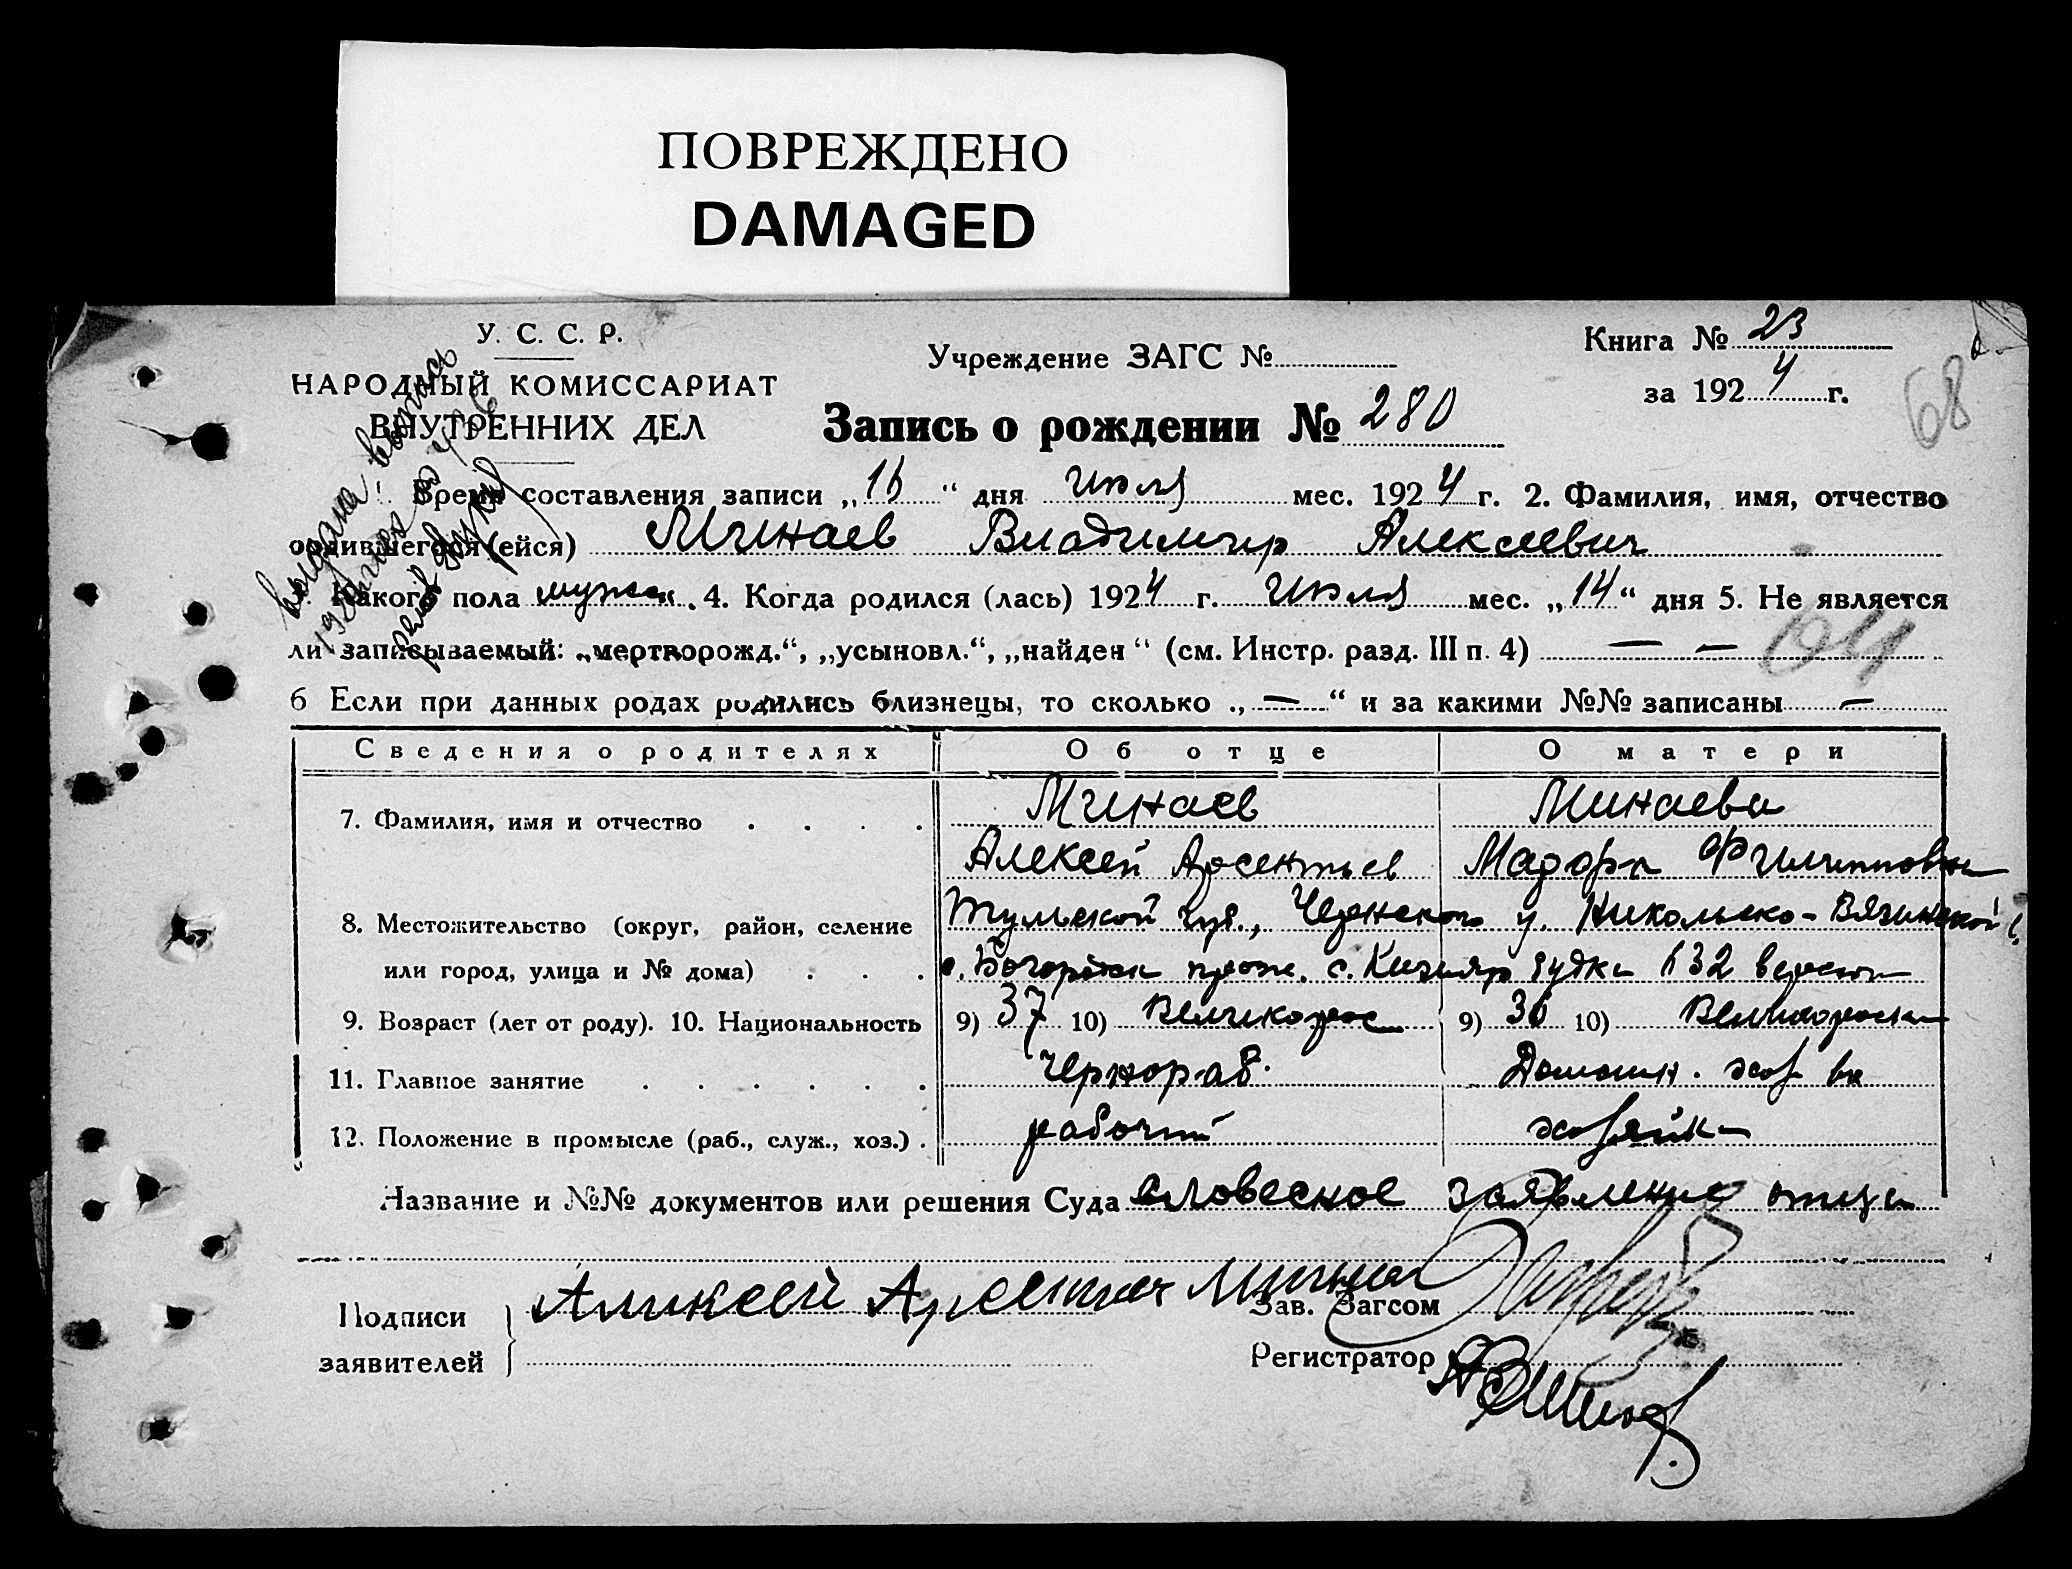 ПОВРЕЖДЕНО
DAMAGED
У. С. С. Р.
НАРОДНЫЙ КОМИССАРИАТ
ВНУТРЕННИХ ДЕЛ
Учреждение ЗАГС №
Книга № 23
за 1924 г.
68
Запись о рождении № 280
Время составления записи „16“ дня Июля мес. 1924 г. 2. Фамилия, имя, отчество
одившегося (ейся) Минаев Владимир Алексеевич
Какого пола мужск. 4. Когда родился (лась) 1924 г. Июля мес. „14“ дня 5. Не является
ли записываемый: „мертворожд.“, „усыновл.“, „найден“ (см. Инстр. разд. III п. 4) — —
6 Если при данных родах родились близнецы, то сколько „—“ и за какими №№ записаны —
Сведения о родителях Об отце О матери
7. Фамилия, имя и отчество Минаев Минаева
Алексей Арсентьев Филипповна
8. Местожительство (округ, район, селение Тульской губ., Чернского у. Никольско-Вяжинской
или город, улица и № дома) будка 132 версты
9. Возраст (лет от роду). 10. Национальность 9) 37 10) Великорос 9) 36 10) Великороска
11. Главное занятие Чернораб. Домашн. хоз во
12. Положение в промысле (раб., служ., хоз.) рабочий хозяйка
Название и №№ документов или решения Суда словесное заявление отца
Подписи заявителей Аликсей Минаев
Зав. Загсом
Регистратор